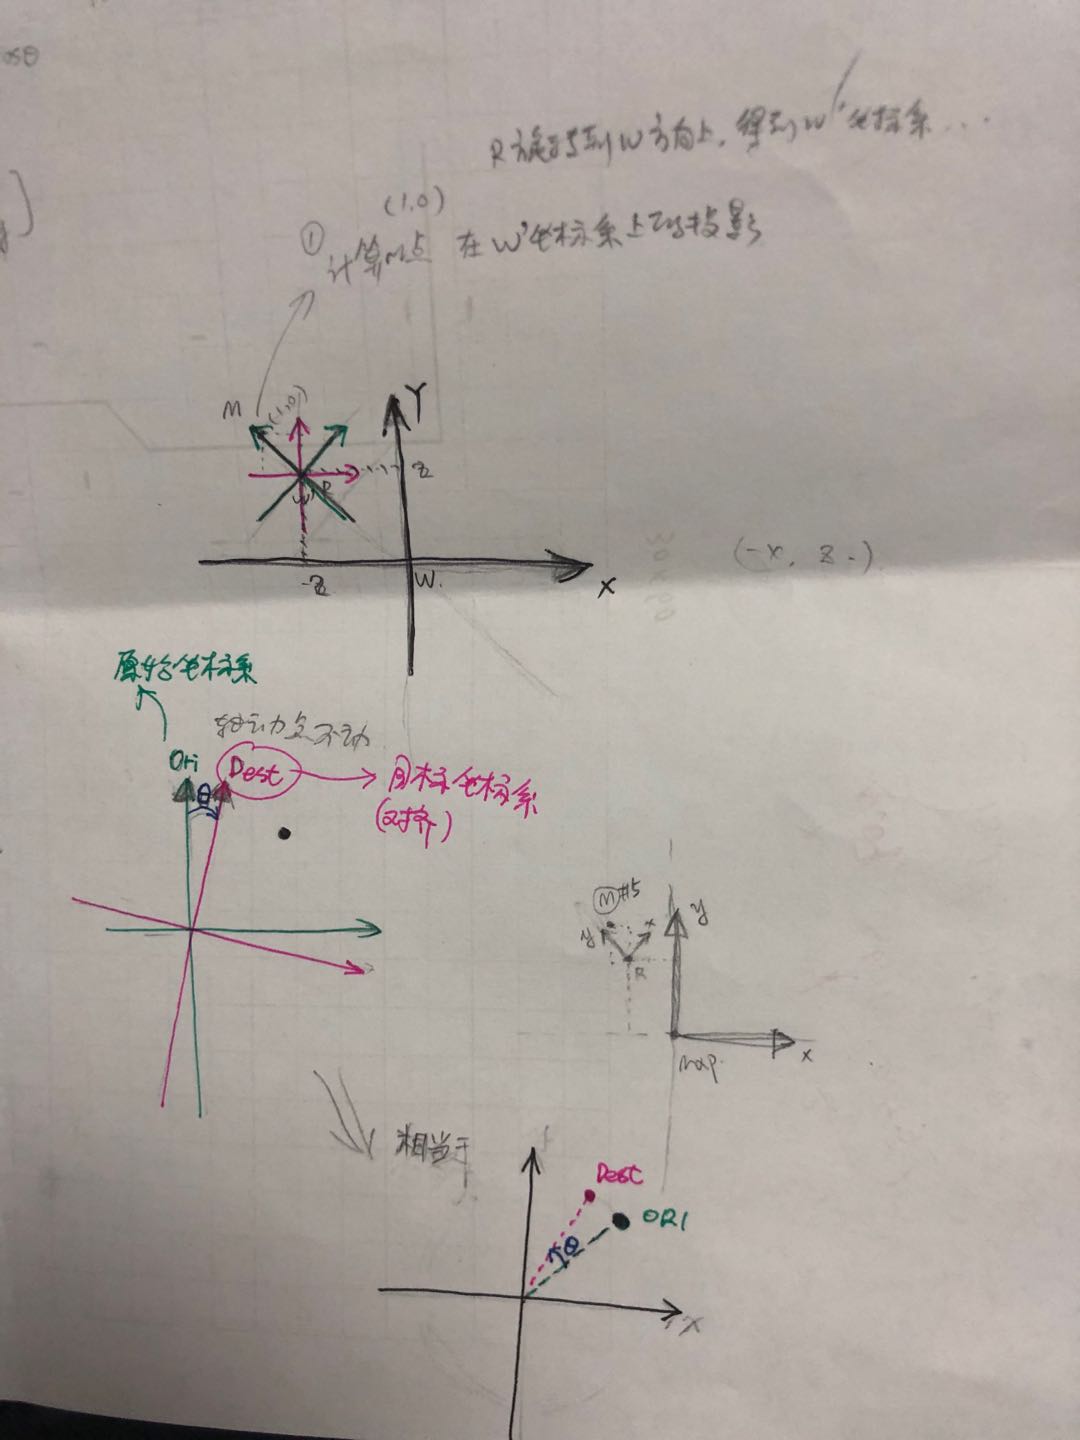 R旋转到W方向上，得到W'坐标系...
(1,0)
① 计算M点 在W'坐标系上的投影
M
(1,0)
Y
R
W'
z
-z
W.
X
(-x, z.)
原始坐标系
轴动点不动
Ori
θ
Dest
目标坐标系
(对齐)
M
y
x
y
R
map.
x
相当于
Dest
ORI
θ
X